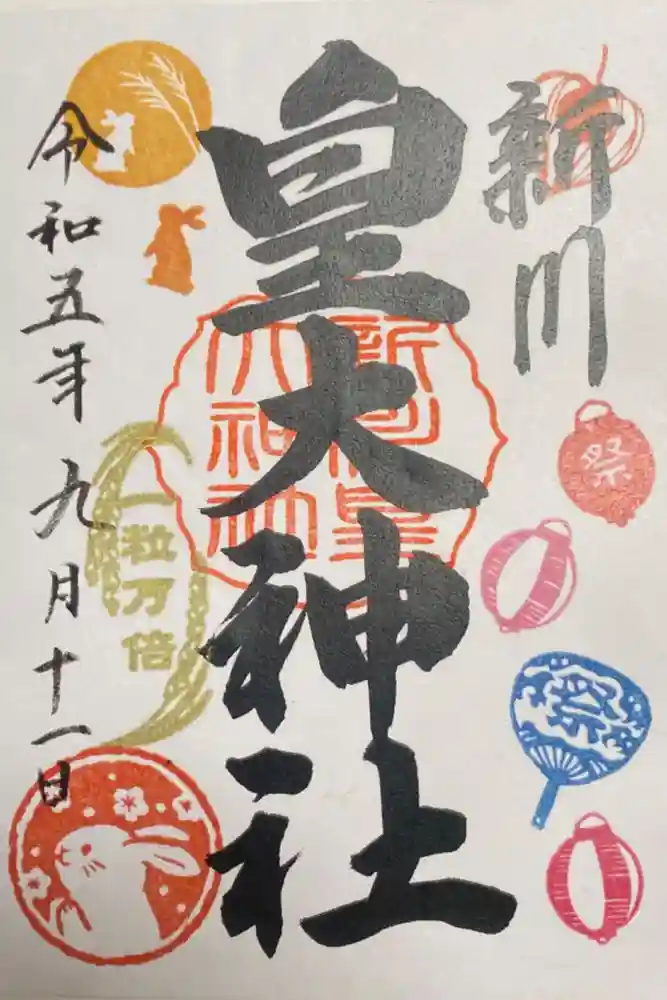 新川
皇大神社
令和五年九月十一日
一粒万倍
新川皇
大神社
祭
祭